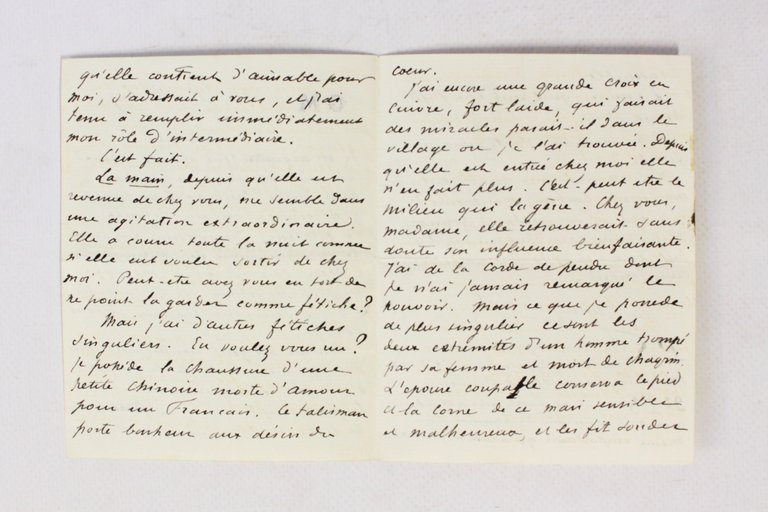 qu'elle contient d'aimable pour
moi, s'adressait à vous, et j'ai
tenu à remplir immédiatement
mon rôle d'intermédiaire.
C'est fait.
La main, depuis qu'elle est
revenue de chez vous, me semble dans
une agitation extraordinaire.
Elle a couru toute la nuit comme
si elle eut voulu sortir de chez
moi. Peut-etre avez vous eu tort de
ne point la garder comme fétiche?
Mais j'ai d'autres fétiches
singuliers. En voulez vous un?
Je possède la chaussure d'une
petite Chinoise morte d'amour
pour un Français. Ce talisman
porte bonheur aux désirs du
coeur.
J'ai encore une grande croix en
cuivre, fort laide, qui faisait
des miracles parait-il dans le
village ou je l'ai trouvée. Depuis
qu'elle est entrée chez moi elle
n'en fait plus. C'est peut etre le
milieu qui la gêne. Chez vous,
madame, elle retrouverait sans
doute son influence bienfaisante.
J'ai de la corde de pendu dont
je n'ai jamais remarqué le
pouvoir. Mais ce que je possede
de plus singulier ce sont les
deux extrémités d'un homme trompé
par sa femme et mort de chagrin.
L'epouse coupable conserva le pied
et la corne de ce mari sensible
et malheureux, et les fit souder